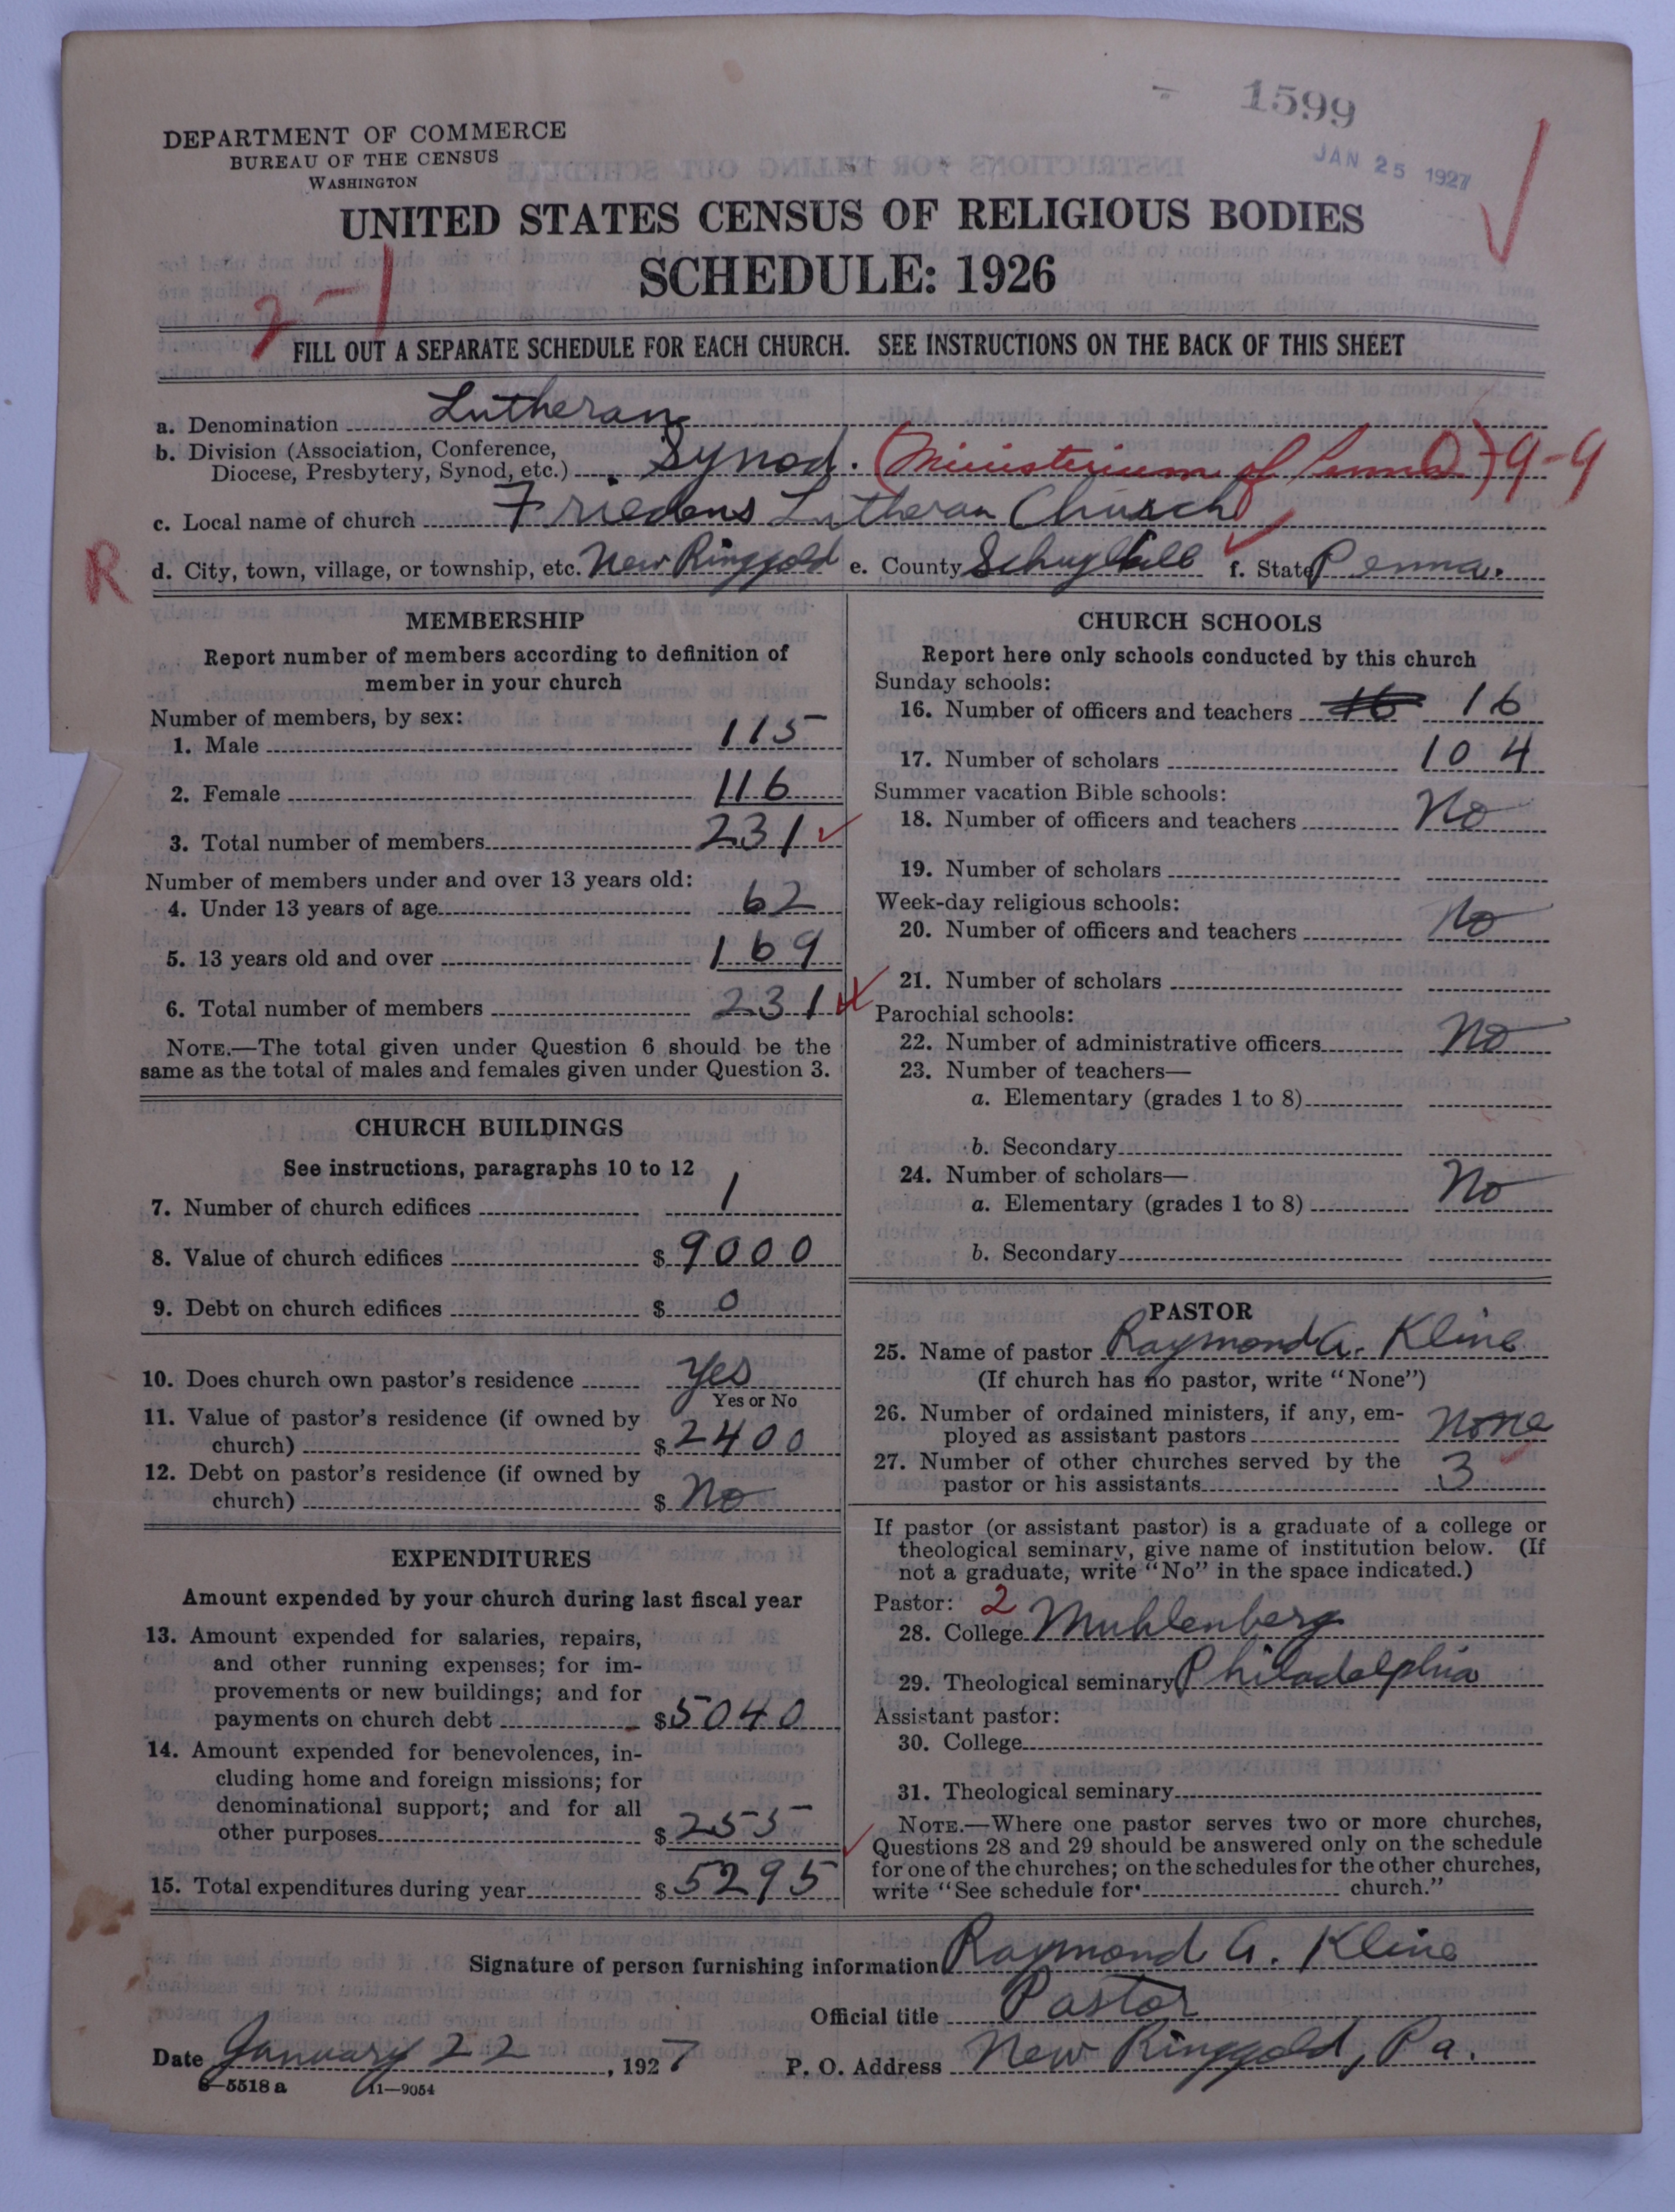 1599
JAN 25 1927
DEPARTMENT OF COMMERCE
BUREAU OF THE CENSUS
WASHINGTON
UNITED STATES CENSUS OF RELIGIOUS BODIES
SCHEDULE: 1926
2-1
FILL OUT A SEPARATE SCHEDULE FOR EACH CHURCH. SEE INSTRUCTIONS ON THE BACK OF THIS SHEET
a. Denomination Lutheran
b. Division (Association, Conference,
Diocese, Presbytery, Synod, etc.) Synod. (Ministerium of Penna) 9-9
c. Local name of church Friedens Lutheran Church
R
d. City, town, village, or township, etc. New Ringgold e. County Schuylkill f. State Penna.
MEMBERSHIP
Report number of members according to definition of
member in your church
Number of members, by sex:
1. Male 115
2. Female 116
3. Total number of members 231
Number of members under and over 13 years old:
4. Under 13 years of age 62
5. 13 years old and over 169
6. Total number of members 231
NOTE.—The total given under Question 6 should be the
same as the total of males and females given under Question 3.
CHURCH BUILDINGS
See instructions, paragraphs 10 to 12
7. Number of church edifices 1
8. Value of church edifices $ 9000
9. Debt on church edifices $ 0
10. Does church own pastor's residence Yes
Yes or No
11. Value of pastor's residence (if owned by
church) $ 2400
12. Debt on pastor's residence (if owned by
church) $ No
EXPENDITURES
Amount expended by your church during last fiscal year
13. Amount expended for salaries, repairs,
and other running expenses; for im-
provements or new buildings; and for
payments on church debt $ 5040
14. Amount expended for benevolences, in-
cluding home and foreign missions; for
denominational support; and for all
other purposes $ 255
15. Total expenditures during year $ 5295
CHURCH SCHOOLS
Report here only schools conducted by this church
Sunday schools:
16. Number of officers and teachers 16 16
17. Number of scholars 104
Summer vacation Bible schools:
18. Number of officers and teachers No
19. Number of scholars
Week-day religious schools:
20. Number of officers and teachers No
21. Number of scholars
Parochial schools:
22. Number of administrative officers No
23. Number of teachers—
a. Elementary (grades 1 to 8)
b. Secondary
24. Number of scholars—
a. Elementary (grades 1 to 8) No
b. Secondary
PASTOR
25. Name of pastor Raymond A. Kline
(If church has no pastor, write "None")
26. Number of ordained ministers, if any, em-
ployed as assistant pastors None
27. Number of other churches served by the
pastor or his assistants 3
If pastor (or assistant pastor) is a graduate of a college or
theological seminary, give name of institution below. (If
not a graduate, write "No" in the space indicated.)
Pastor: 2
28. College Muhlenberg
29. Theological seminary Philadelphia
Assistant pastor:
30. College
31. Theological seminary
NOTE.—Where one pastor serves two or more churches,
Questions 28 and 29 should be answered only on the schedule
for one of the churches; on the schedules for the other churches,
write "See schedule for church."
Signature of person furnishing information Raymond A. Kline
Official title Pastor
Date January 22, 1927 P. O. Address New Ringgold, Pa.
8—5518 a 11—9054